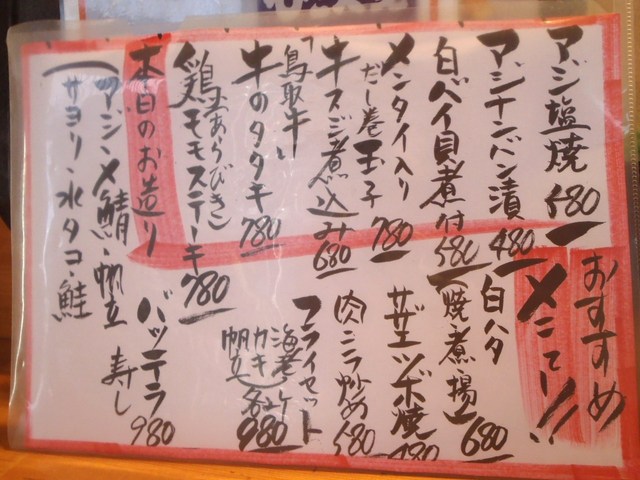 おすすめ
メニュー!!
アジ塩焼 580
アジナンバン漬 480
白バイ貝煮付 580
メンタイ入り
だし巻玉子 780
牛スジ煮込み 680
「鳥取牛」
牛のタタキ 780
鶏モモステーキ 780
本日のお造り
(アジ・〆鯖・帆立
サヨリ・水タコ・鮭
白ハタ
(焼・煮・揚) 680
サザエツボ焼 480
肉ニラ炒め 580
フライセット
海老
カキ
帆立) 各々 980
バッテラ寿し 980